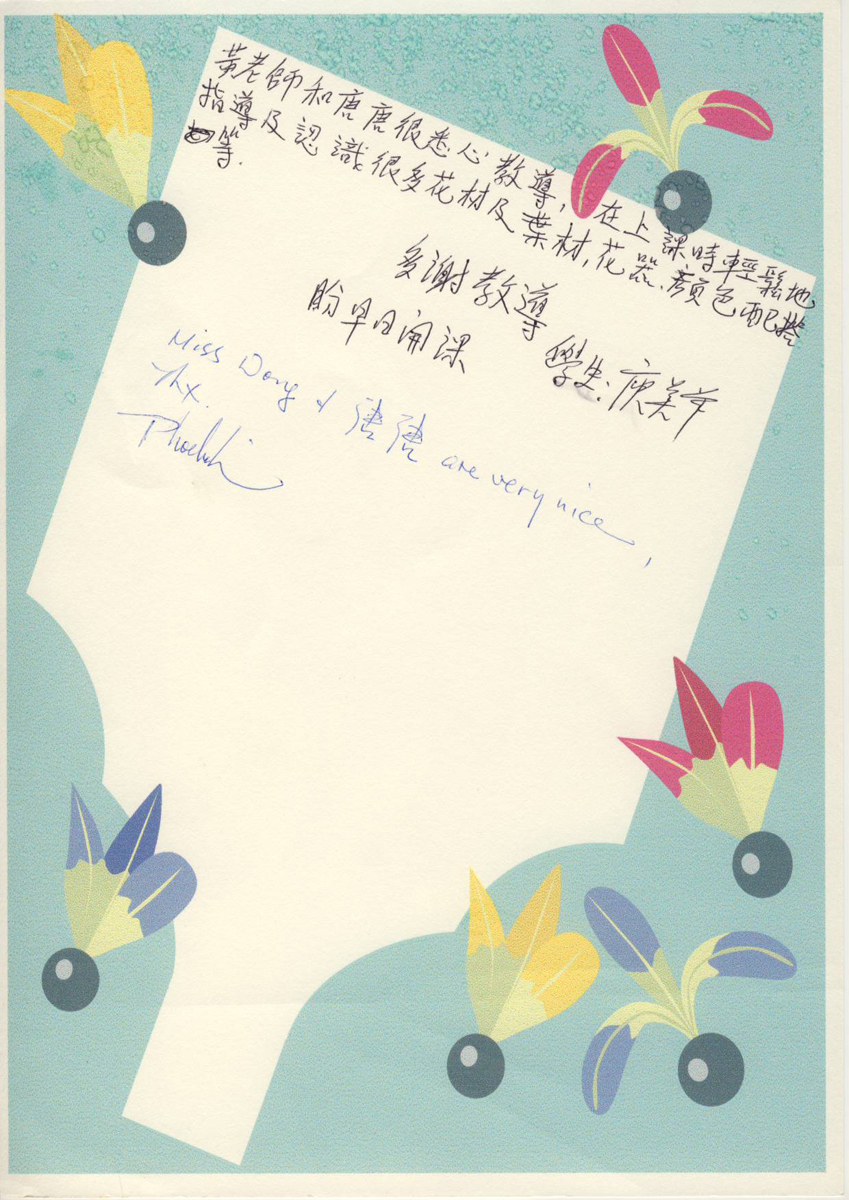 黃老師和唐唐很悉心教導,在上課時輕鬆地
指導及認識很多花材及葉材,花器.顏色配搭
等.
多謝教導
盼早日開課
學生:
Miss Dong & 唐唐 are very nice,
Thx.